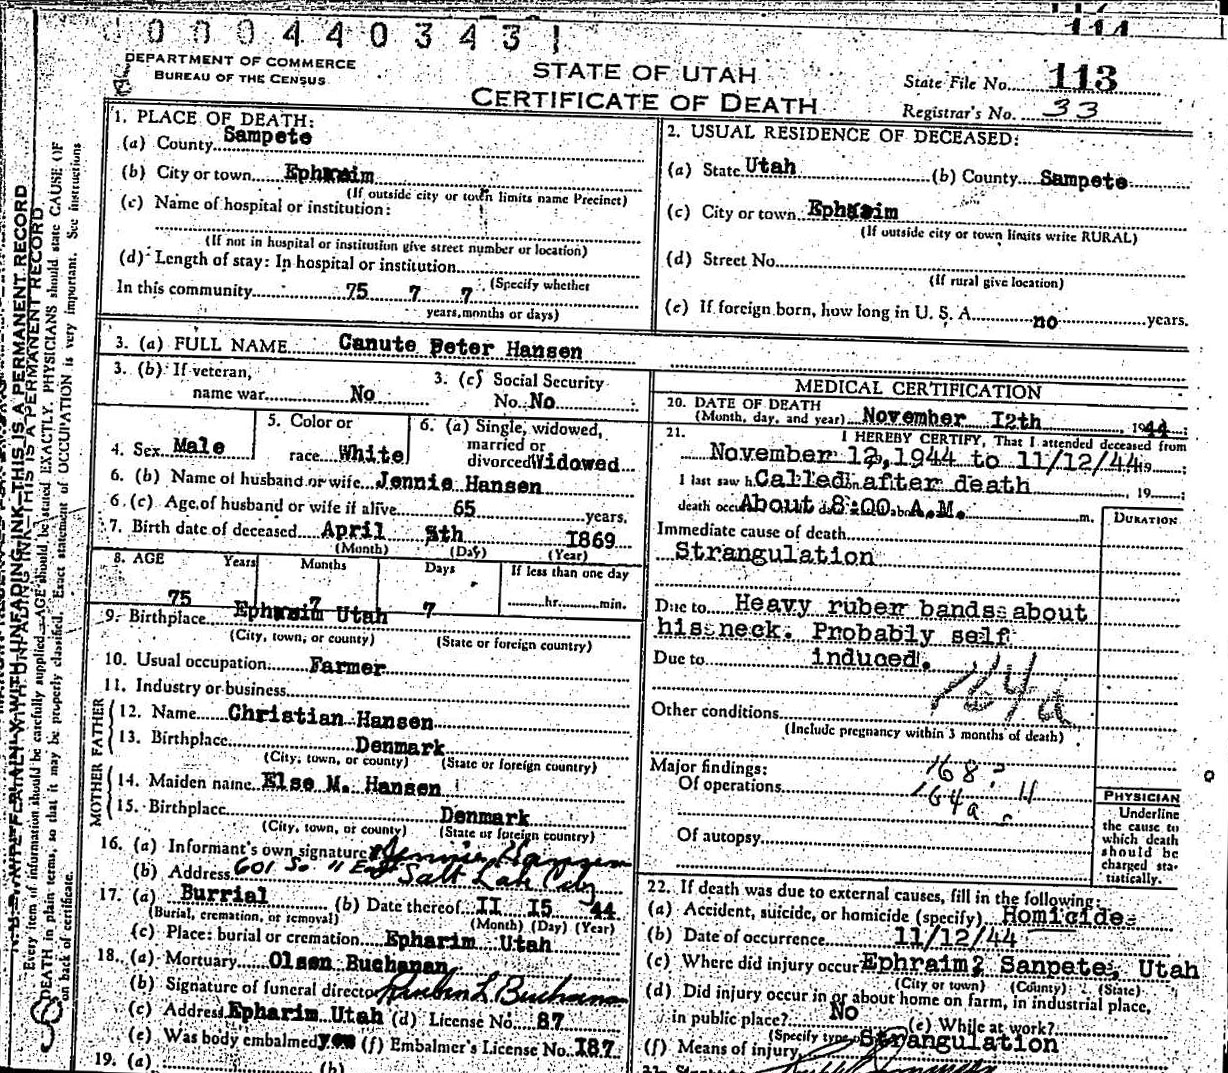 0004403431
114
DEPARTMENT OF COMMERCE
BUREAU OF THE CENSUS
STATE OF UTAH
CERTIFICATE OF DEATH
State File No. 113
Registrar's No. 33
1. PLACE OF DEATH:
(a) County Sampete
(b) City or town Ephraim
(If outside city or town limits name Precinct)
(c) Name of hospital or institution:
(If not in hospital or institution give street number or location)
(d) Length of stay: In hospital or institution
(Specify whether
In this community 75 7 7
years, months or days)
2. USUAL RESIDENCE OF DECEASED:
(a) State Utah (b) County Sampete
(c) City or town Ephraim
(If outside city or town limits write RURAL)
(d) Street No.
(If rural give location)
(e) If foreign born, how long in U. S. A. no years.
3. (a) FULL NAME Canute Peter Hansen
3. (b) If veteran, name war No
3. (c) Social Security No. No
4. Sex Male
5. Color or race White
6. (a) Single, widowed, married or divorced Widowed
6. (b) Name of husband or wife Jennie Hansen
6. (c) Age of husband or wife if alive 65 years.
7. Birth date of deceased April 5th 1869
(Month) (Day) (Year)
8. AGE Years Months Days If less than one day
75 7 7 hr. min.
9. Birthplace Ephraim Utah
(City, town, or county) (State or foreign country)
10. Usual occupation Farmer
11. Industry or business
FATHER
12. Name Christian Hansen
13. Birthplace Denmark
(City, town, or county) (State or foreign country)
MOTHER
14. Maiden name Else M. Hansen
15. Birthplace Denmark
(City, town, or county) (State or foreign country)
16. (a) Informant's own signature Jennie Hansen
(b) Address 601 So. 11 East Salt Lake City
17. (a) Burrial (b) Date thereof II I5 44
(Burial, cremation, or removal) (Month) (Day) (Year)
(c) Place: burial or cremation Epharim Utah
18. (a) Mortuary Olsen Buchanan
(b) Signature of funeral director
(c) Address Epharim Utah (d) License No. 87
(e) Was body embalmed yes (f) Embalmer's License No. I87
19. (a) (b)
MEDICAL CERTIFICATION
20. DATE OF DEATH
(Month, day, and year) November I2th, 1944
21. I HEREBY CERTIFY, That I attended deceased from
November 12, 1944 to 11/12/44 19
I last saw h Called in after death, 19
death occu About 8:00 A.M. m.
DURATION
Immediate cause of death
Strangulation
Due to Heavy ruber bands about
his neck. Probably self
Due to induced.
164a
Other conditions
(Include pregnancy within 3 months of death)
Major findings: 168
Of operations 164a 11
Of autopsy
PHYSICIAN
Underline
the cause to
which death
should be
charged sta-
tistically.
22. If death was due to external causes, fill in the following:
(a) Accident, suicide, or homicide (specify) Homicide
(b) Date of occurrence 11/12/44
(c) Where did injury occur Ephraim, Sanpete, Utah
(City or town) (County) (State)
(d) Did injury occur in or about home on farm, in industrial place,
in public place? No (e) While at work?
(Specify type
(f) Means of injury Strangulation
THIS IS A PERMANENT RECORD
Every item of information should be carefully supplied. AGE should be stated EXACTLY. PHYSICIANS should state CAUSE OF
DEATH in plain terms, so that it may be properly classified. Exact statement of OCCUPATION is very important. See instructions
on back of certificate.